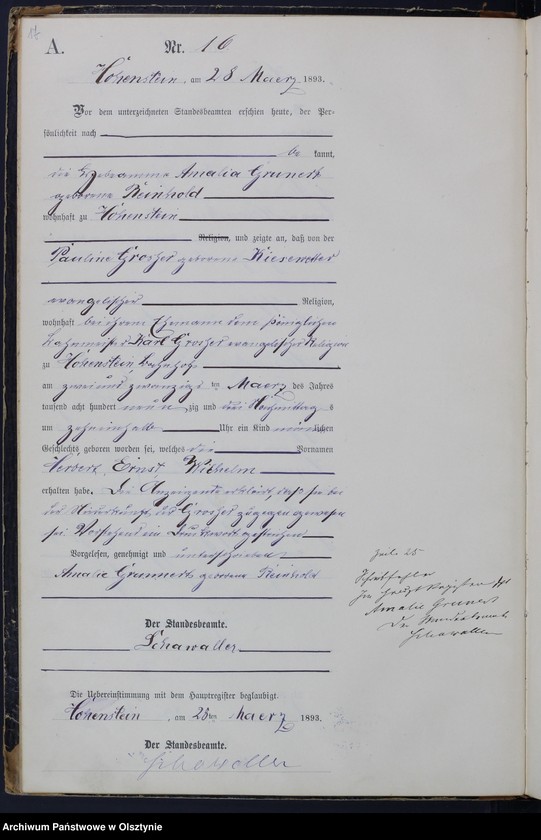 A.
Nr. 16
Hohenstein, am 28 Maerz 1893.
Vor dem unterzeichneten Standesbeamten erschien heute, der Per-
sönlichkeit nach
be kannt,
die Hebeamme Amalia Grunert
geborene Reinhold
wohnhaft zu Hohenstein
Religion, und zeigte an, daß von der
Pauline Groscher geborene Kiesewetter
evangelischer Religion,
wohnhaft bei ihrem Ehemann dem königlichen
Bahnmeister Karl Groscher evangelischer Religion
zu Hohenstein, Bahnhof
am zweiundzwanzigsten Maerz des Jahres
tausend acht hundert neunzig und drei Nachmittags
um zehneinhalb Uhr ein Kind männlichen
Geschlechts geboren worden sei, welches die Vornamen
Herbert Ernst Wilhelm
erhalten habe. Die Anzeigende erklärt, daß sie bei
der Niederkunft der Groscher zugegen gewesen
sei. Vorstehend ein Druckwort gestrichen
Vorgelesen, genehmigt und unterschrieben
Amalie Grunnert geborene Reinhold
Der Standesbeamte.
Schawaller
Die Uebereinstimmung mit dem Hauptregister beglaubigt.
Hohenstein, am 28ten Maerz 1893.
Der Standesbeamte.
Schawaller
Zeile 25
Schreibfehler
Im Hauptregister steht
Amalie Grunert
Der Standesbeamte
Schawaller
Archiwum Państwowe w Olsztynie